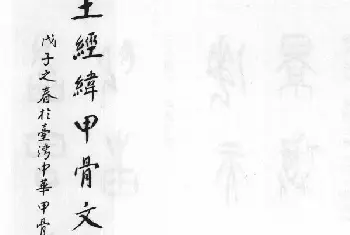 王經緯甲骨文
戊子之春於臺灣中華甲骨